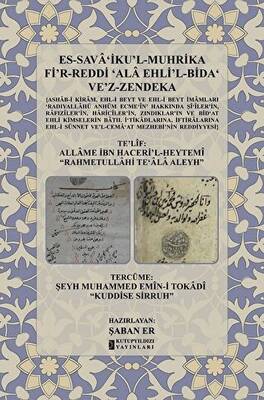 ES-SAVÂ‘İKU’L-MUHRİKA
Fİ’R-REDDİ ‘ALÂ EHLİ’L-BİDA‘
VE’Z-ZENDEKA
[ASHÂB-I KİRÂM, EHL-İ BEYT VE EHL-İ BEYT İMÂMLARI
‘RADIYALLÂHÜ ANHÜM ECME‘ÎN’ HAKKINDA Şİ‘ÎLER’İN,
RÂFIZÎLER’İN, HÂRİCÎLER’İN, ZINDIKLAR’IN VE BİD‘AT
EHLİ KİMSELERİN BÂTIL İ‘TİKÂDLARINA, İFTİRÂLARINA
EHL-İ SÜNNET VE’L-CEMÂ‘AT MEZHEBİ’NİN REDDİYYESİ]
TE’LÎF:
ALLÂME İBN HACERİ’L-HEYTEMÎ
“RAHMETULLÂHİ TE‘ÂLÂ ALEYH”
TERCÜME:
ŞEYH MUHAMMED EMÎN-İ TOKÂDÎ
“KUDDİSE SİRRUH”
HAZIRLAYAN:
ŞABAN ER
KUTUPYILDIZI
YAYINLARI